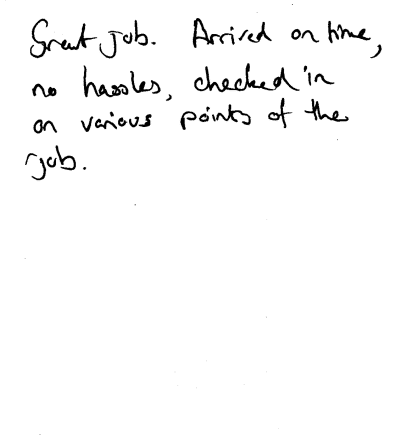 Great job. Arrived on time,
no hassles, checked in
on various points of the
job.